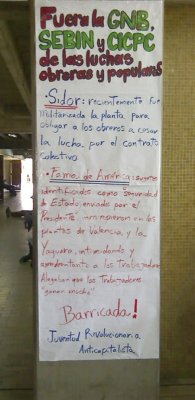 Fuera la GNB,
SEBIN y CICPC
de las luchas
obreras y populares
• Sidor: recientemente fue
militarizada la planta para
obligar a los obreros a cesar
la lucha por el contrato
colectivo
• Parma de América: sujetos
identificados como seguridad
de Estado, enviado por el
Presidente irrumpieron en las
plantas de Valencia, y la
Yaguara, intimidando y
amedrentando a los trabajadores
Alegaban que los Trabajadores
"ganan mucho"
Barricada!
Juventud Revolucionaria
Anticapitalista